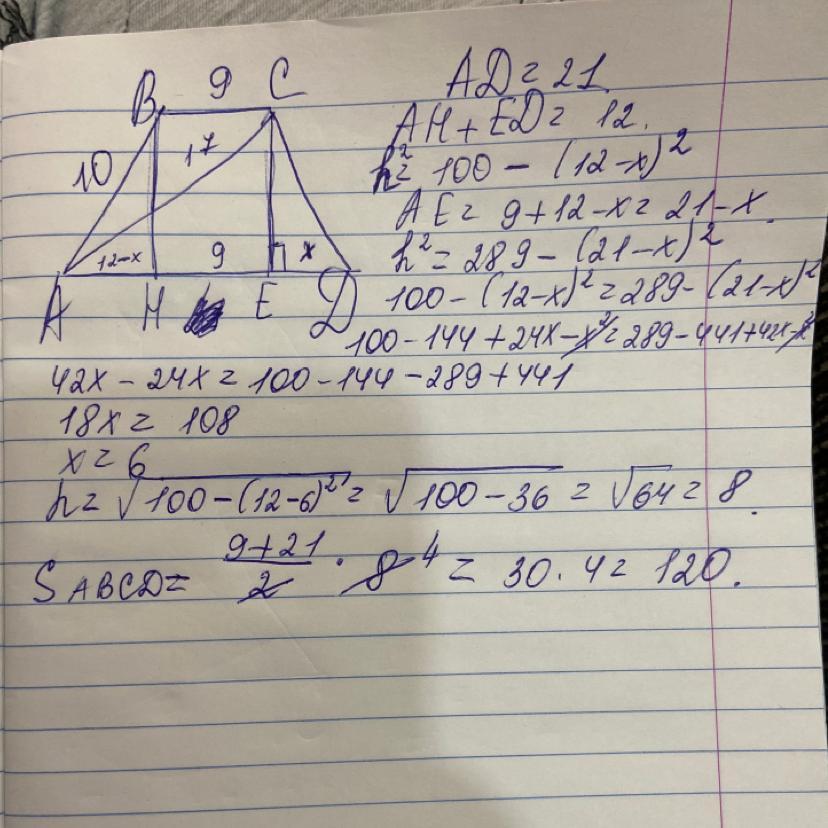 9
B C
10
17
12-x 9 x
A H E D
AD = 21
AH + ED = 12.
h² = 100 - (12-x)²
AE = 9+12-x = 21-x.
h² = 289 - (21-x)²
100 - (12-x)² = 289 - (21-x)²
100 - 144 + 24x - x² = 289 - 441 + 42x - x²
42x - 24x = 100 - 144 - 289 + 441
18x = 108
x = 6
h = √(100-(12-6)²) = √(100-36) = √64 = 8.
S ABCD = (9+21)/2 · 8 4 = 30 · 4 = 120.